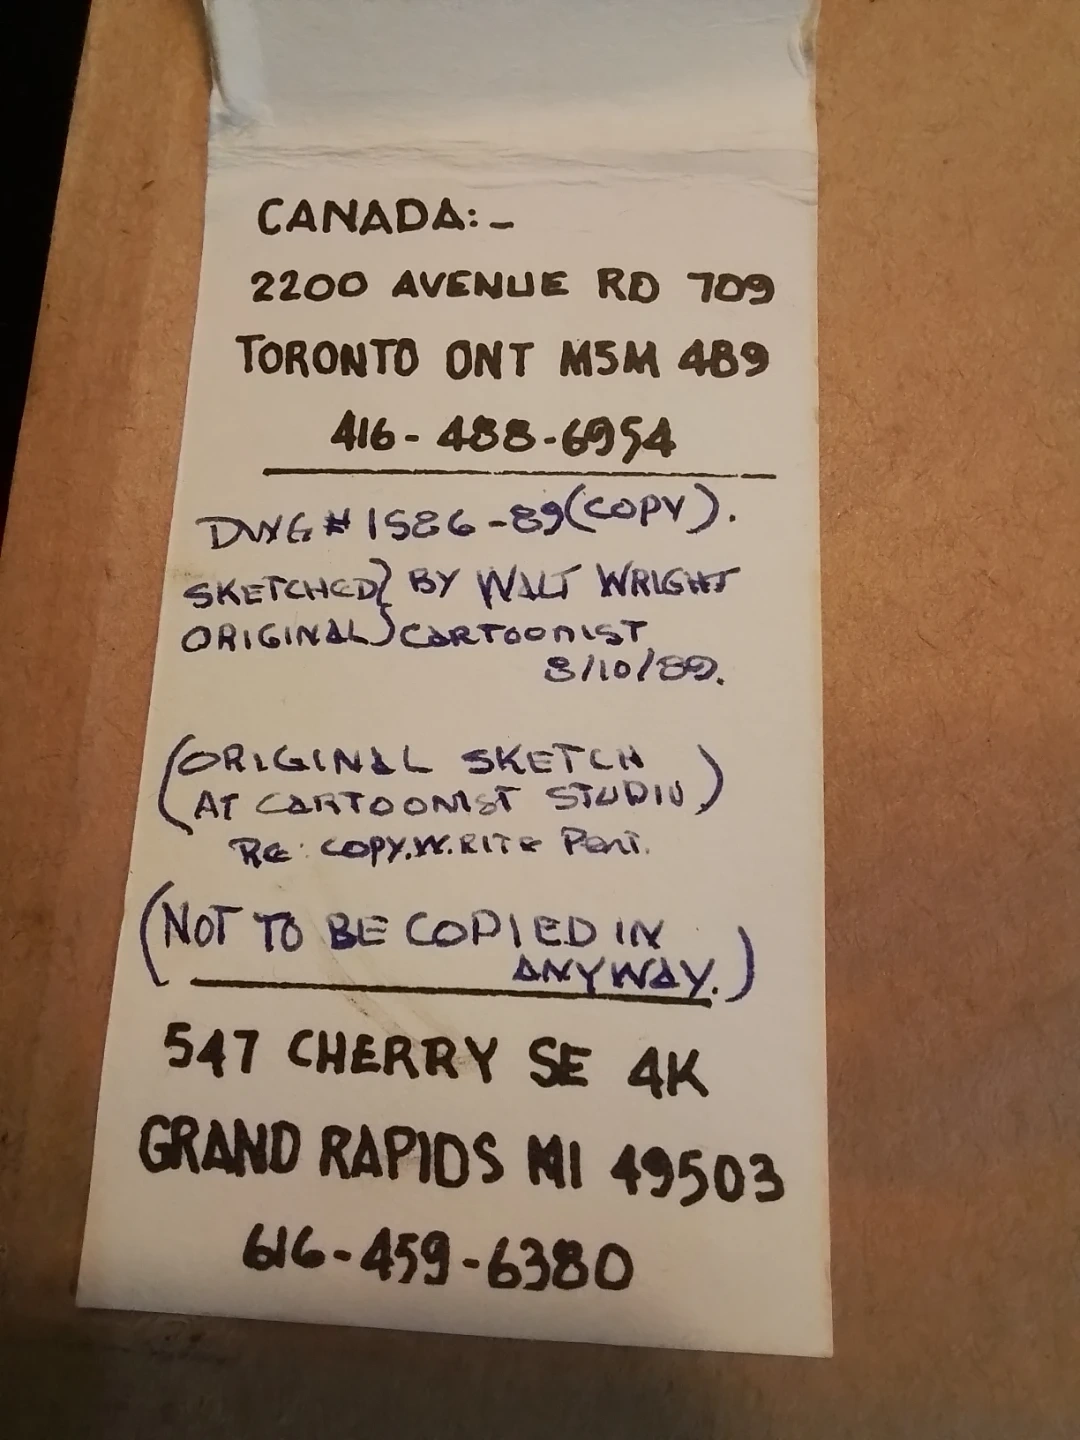 CANADA:-
2200 AVENUE RD 709
TORONTO ONT M5M 4B9
416-488-6954
DWG # 1586-89 (COPY).
SKETCHED} BY WALT WRIGHT
ORIGINAL} CARTOONIST
8/10/89.
(ORIGINAL SKETCH
AT CARTOONIST STUDIO)
RE: COPY.W.RITE
(NOT TO BE COPIED IN
ANYWAY.)
547 CHERRY SE 4K
GRAND RAPIDS MI 49503
616-459-6380